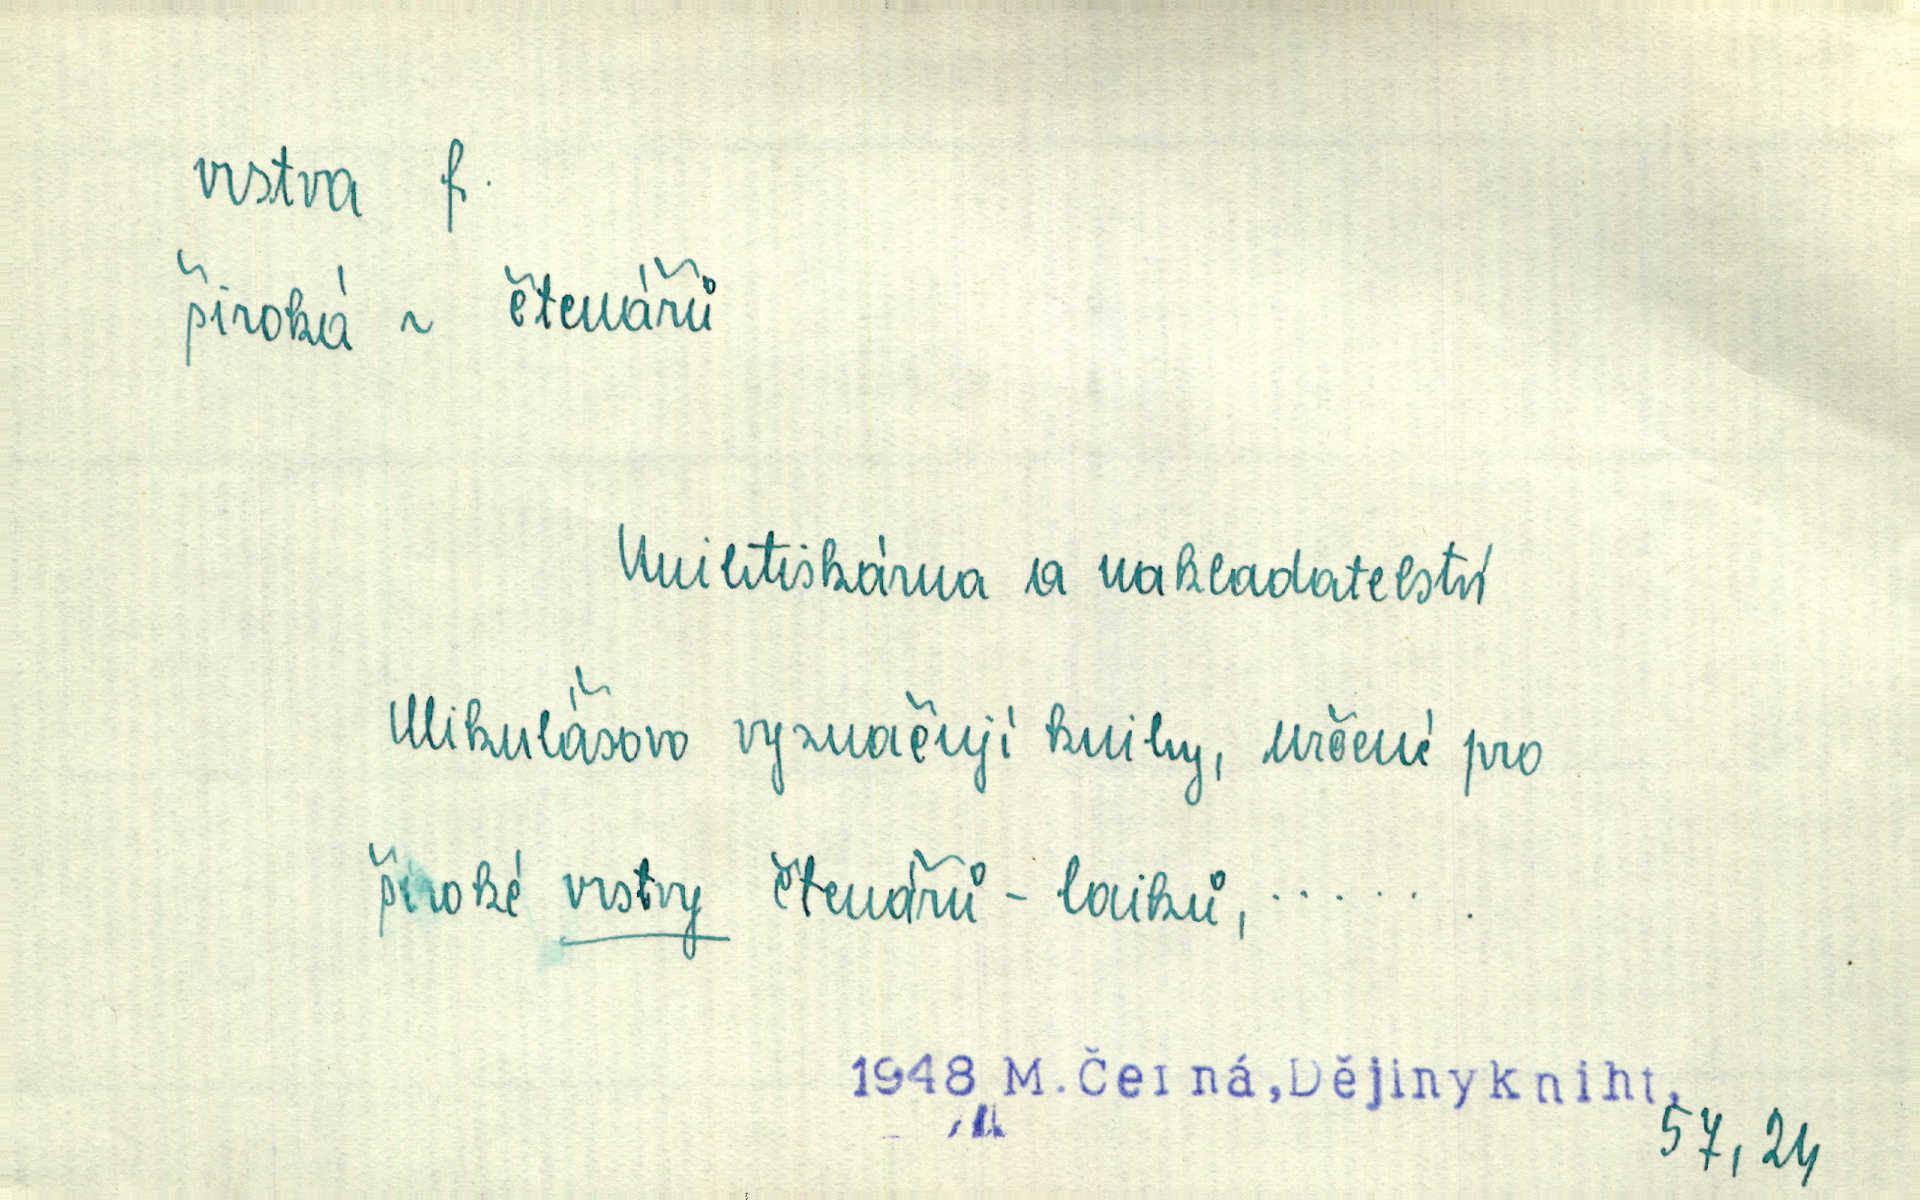 vrstva f.
široká ~ čtenářů
Knihtiskárna a nakladatelství
Mikulášovo vyznačují knihy, určené pro
široké vrstvy čtenářů - laiků, ......
1948 M.Černá,Dějiny kniht,
57, 24